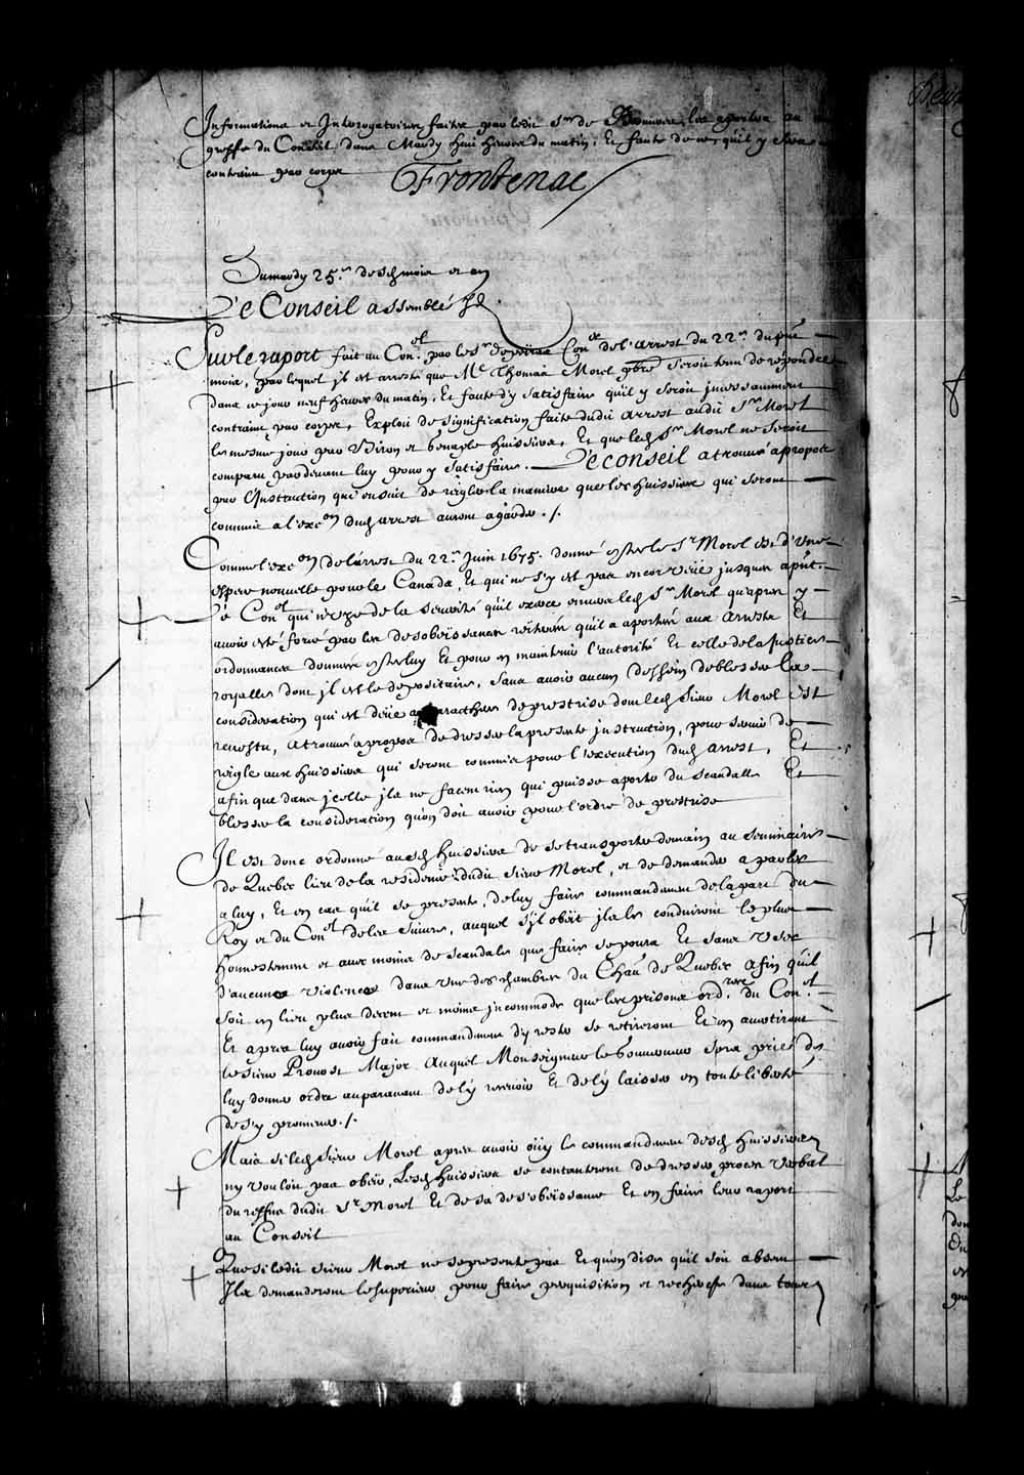 Informations et Interogatoires faites par ledit Sr. de les aportera au
greffe du Conseil dans Mardy huit heures du matin, Et faute de ce, qu'il y sera
contraint par corps
Frontenac
Du mardy 25e. desd mois et an
Le Conseil assemblé
Sur le raport fait au Conel. par le Sr. Coner de l'arrest du 22e. du pnt
mois, par lequel jl est arresté que Me. Thomas Morel pbre seroit tenu de repondre
dans ce jour neuf heures du matin, Et faute d'y satisfaire qu'il y seroit jncessamment
contraint par corps, Exploit de signification faite dudit arrest audit Sr. Morel
le mesme jour par Biron et Genaple huissiers, Et que led Sr. Morel ne seroit
comparu pardevant luy pour y satisfaire. Le conseil a trouvé apropos
par l'Instruction qui ensuit de reigler la maniere que les huissiers qui seront
commis a l'exeon dud arrest auront a garder ./.
Comme l'exeon de l'arrest du 22e. Juin 1675. donné contre le Sr. Morel est d'une
espece nouvelle pour le Canada, Et qui ne s'y est pas encor veüe jusques apnt.
Le Conel qui use de la severité qu'il exerce envers led Sr. Morel qu'apres y
avoir esté forcé par les desobeissances reiterées quil a aportées aux arrests Et
ordonnances données contre luy Et pour en maintenir l'autorité Et celle de la Justice
royalle dont jl est le depositaire, sans avoir aucun dessein de blesser la
consideration qui est deüe au caracthere de prestrise dont led Sieur Morel est
revestu, a trouvé apropos de dresser la presente jnstruction, pour servir de
reigle aux huissiers qui seront commis pour l'execution dud arrest, Et
afin que dans jcelle jls ne facent rien qui puisse aporter du scandalle Et
blesser la consideration qu'on doit avoir pour l'ordre de prestrise
Il est donc ordonné ausd huissiers de se transporter demain au seminaire
de Quebec lieu de la residence dudit Sieur Morel, et de demander a parler
a luy, Et en cas qu'il se presente, de luy faire commandement de la part du
Roy et du Conel de les suivre, auquel s'jl obéit jls le conduiront le plus
honnestement et avec moins de scandale que faire se poura Et sans user
d'aucune violence dans une des chambres du Chau de Quebec afin qu'il
soit en lieu plus decent et moins jncommode que les prisons ordres. du Conel.
Et apres luy avoir fait commandement d'y rester se retireront Et en avertiront
le sieur Provost Major Auquel Monseigneur le Gouverneur sera prié de
luy donner ordre auparavant de l'y recevoir Et de l'y laisser en toute liberté
de s'y promener ./.
Mais si led Sieur Morel apres avoir oüy le commandement desd huissiers
n'y vouloit pas obeir, Lesd huissiers se contenteront de dresser proces verbal
du reffus dudit Sr. Morel Et de sa desobeissance Et en faire leur raport
au Conseil
Que si ledit sieur Morel ne se presente pas Et qu'on dise qu'il soit absent
Ils demanderont le superieur pour faire perquisition et recherche dans tous